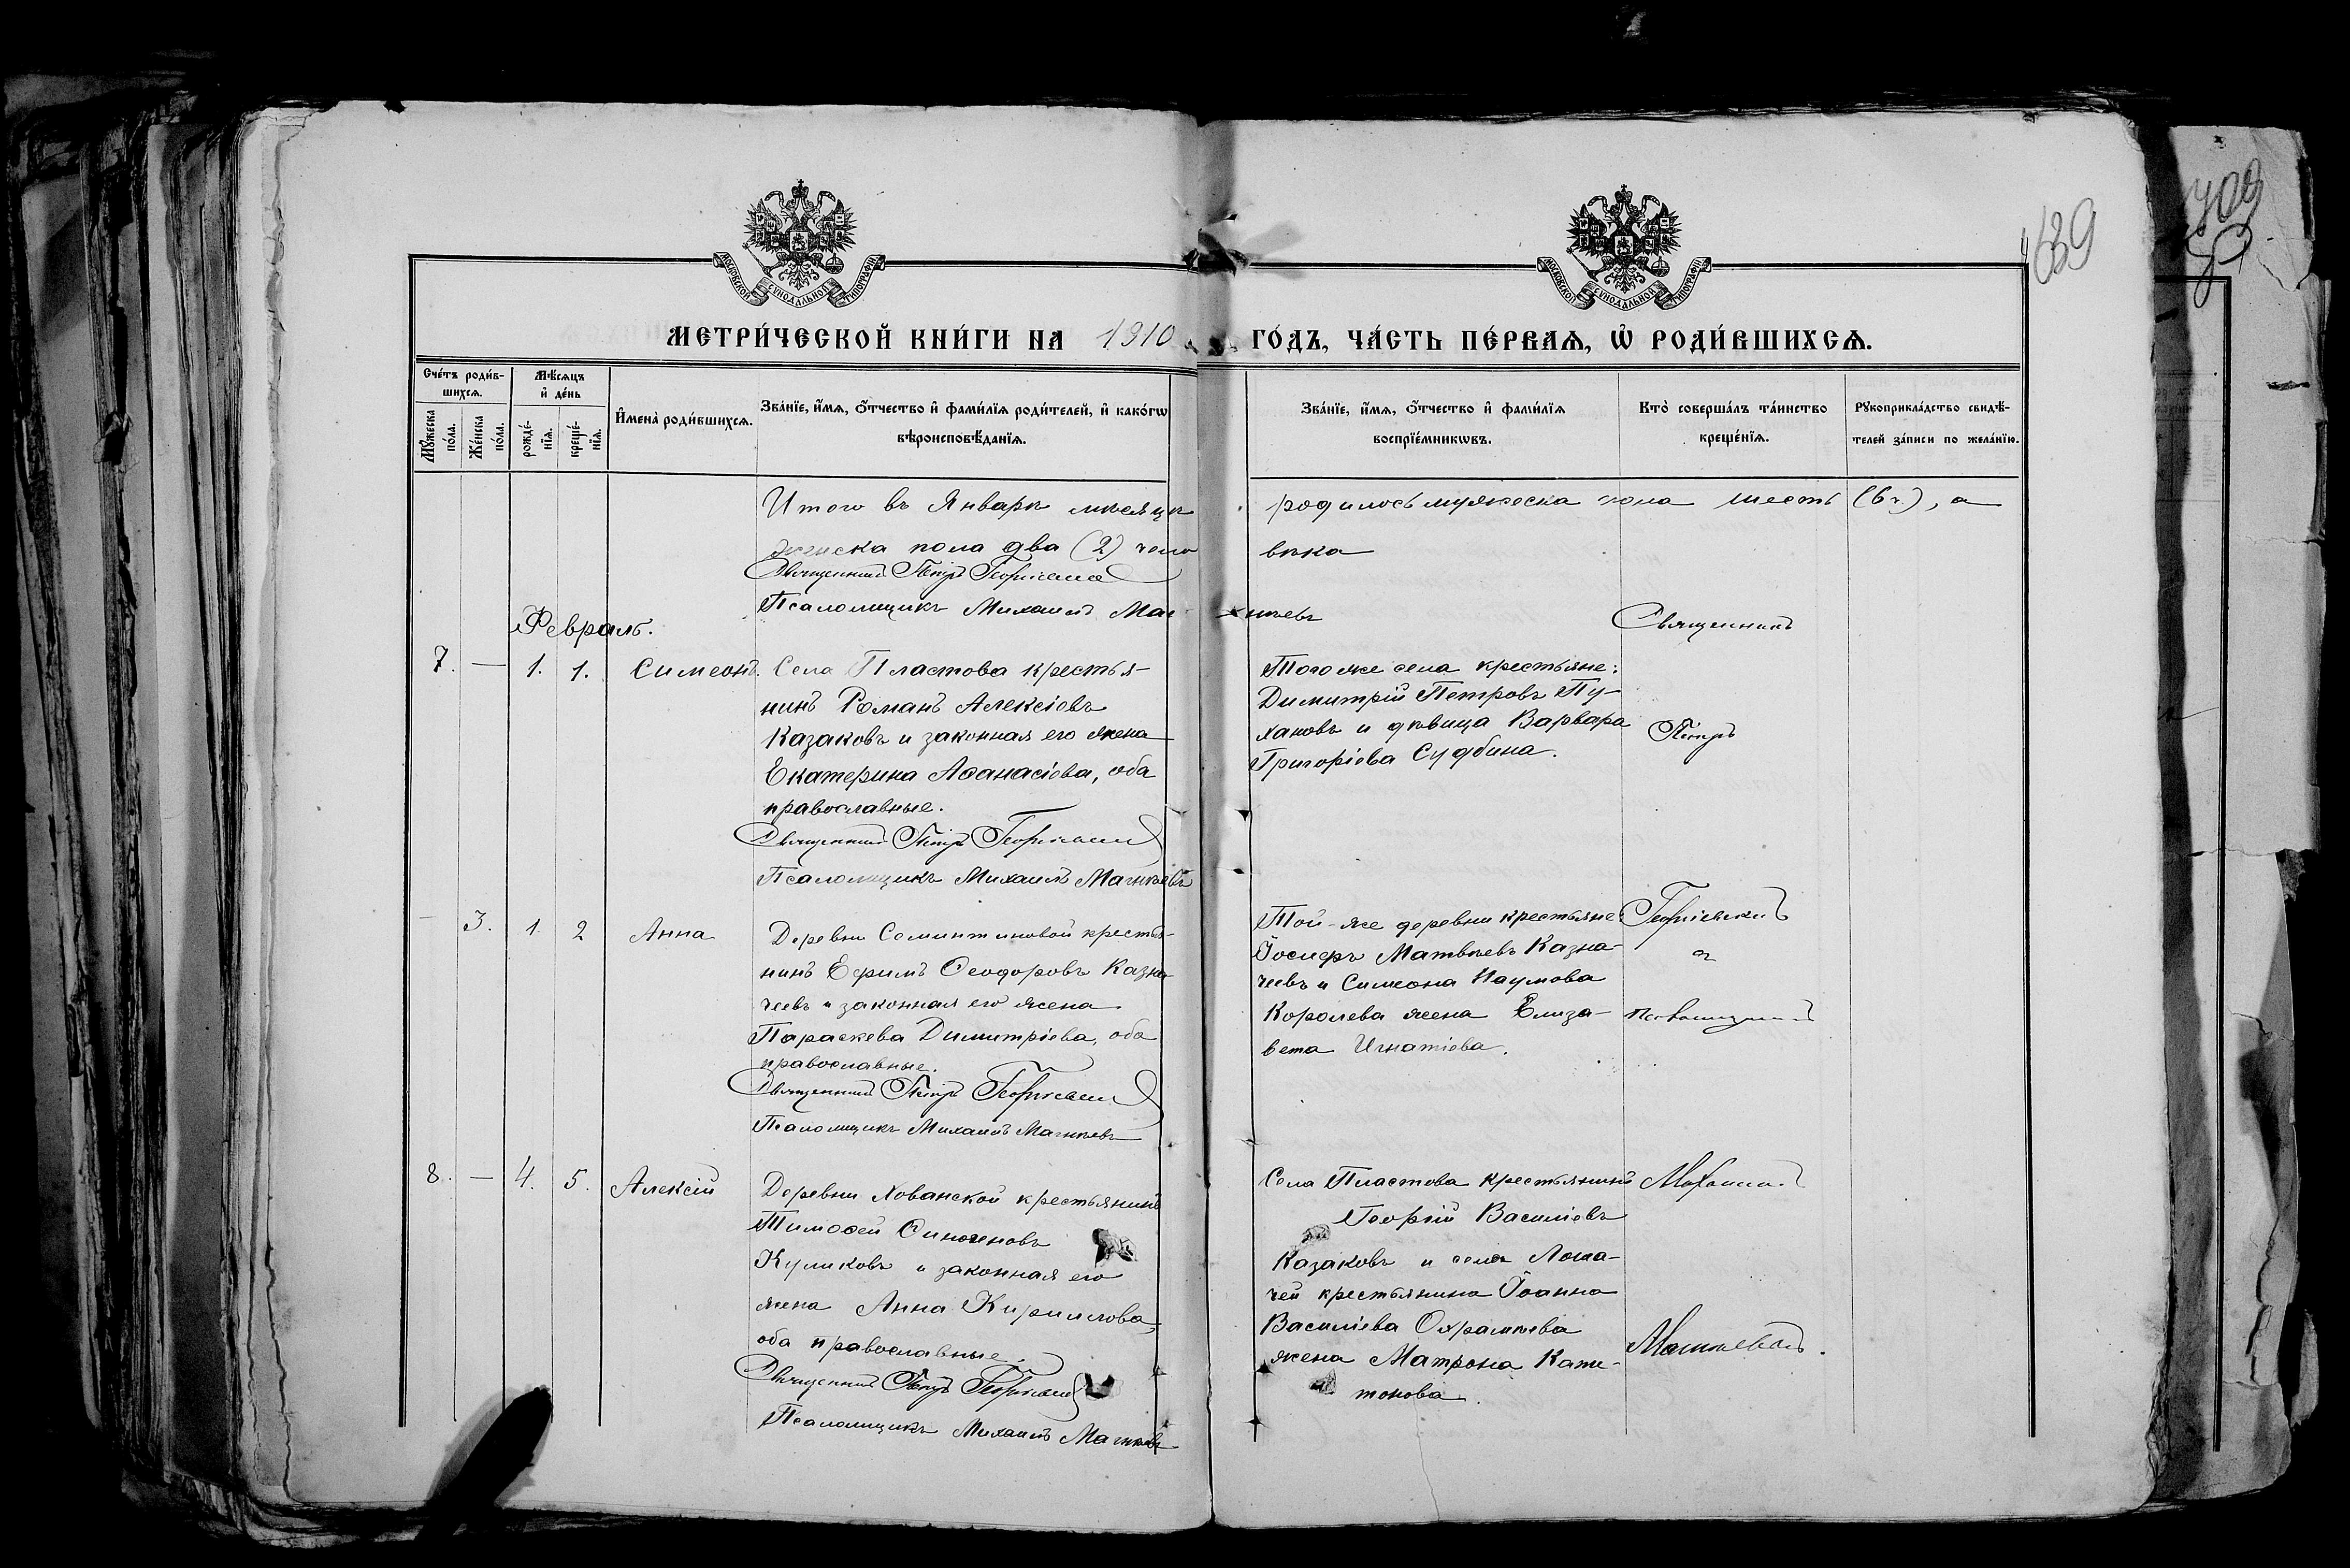 МОСКОВСКОЙ СУНОДАЛЬНОЙ ТИПОГРАФІИ
МОСКОВСКОЙ СУНОДАЛЬНОЙ ТИПОГРАФІИ
639
МЕТРИ́ЧЕСКОЙ КНИ́ГИ НА 1910 ГО́ДЪ, ЧА́СТЬ ПЕ́РВАѦ, Ѽ РОДИ́ВШИХСѦ.
Сче́тъ роди́в-
шихсѧ.
Мꙋ́жеска
по́ла.
Же́нска
по́ла.
Мѣ́сѧцъ
и҆ де́нь
рожде́-
нїѧ.
креще́-
нїѧ.
И҆мена̀ роди́вшихсѧ.
Зва́нїе, и҆́мѧ, ѻ҆́тчество и҆ фами́лїѧ роди́телей, и҆ како́гѡ
вѣроисповѣ́данїѧ.
Зва́нїе, и҆́мѧ, ѻ҆́тчество и҆ фами́лїѧ
воспрїе́мникѡвъ.
Кто̀ соверша́лъ та́инство
креще́нїѧ.
Рꙋкоприкла́дство свидѣ́-
телей за́писи по жела́нїю.
Итого въ Январѣ мѣсяцѣ родилось мужеска пола шесть (6 ч.), а
женска пола два (2) чело вѣка
Священникъ Петръ Георгіевскій
Псаломщикъ Михаилъ
Февраль.
7. — 1. 1. Симеонъ.
Села Пластова крестья-
нинъ Романъ Алексіевъ
Казаковъ и законная его жена
Екатерина Аѳанасіева, оба
православные.
Священникъ Петръ Георгіевскій
Псаломщикъ Михаилъ Магнѣевъ
Того же села крестьяне:
Димитрій Петровъ Пу-
хановъ и дѣвица Варвара
Григоріева Судбина.
Священникъ
Петръ
— 3. 1. 2 Анна
Деревни крестья-
нинъ Ефимъ Ѳеодоровъ Казна-
чеевъ и законная его жена
Параскева Димитріева, оба
православные.
Священникъ Петръ Георгіевскій
Псаломщикъ Михаилъ Магнѣевъ
Той-же деревни крестьяне
Іосифъ Матвѣевъ Казна-
чеевъ и Симеона Наумова
Королева жена Елиза-
вета Игнатіева.
Георгіевскій
и
псаломщикъ
8. — 4. 5. Алексій
Деревни Хованской крестьянинъ
Тимоѳей
Куликовъ и законная его
жена Анна Кириллова,
оба православные.
Священникъ Петръ Георгіевскій
Псаломщикъ Михаилъ Магнѣевъ
Села Пластова крестьянинъ
Георгій Василіевъ
Казаковъ и села Лома-
чей крестьянина Іоанна
Василіева
жена Матрона
Михаилъ
Магнѣевъ.